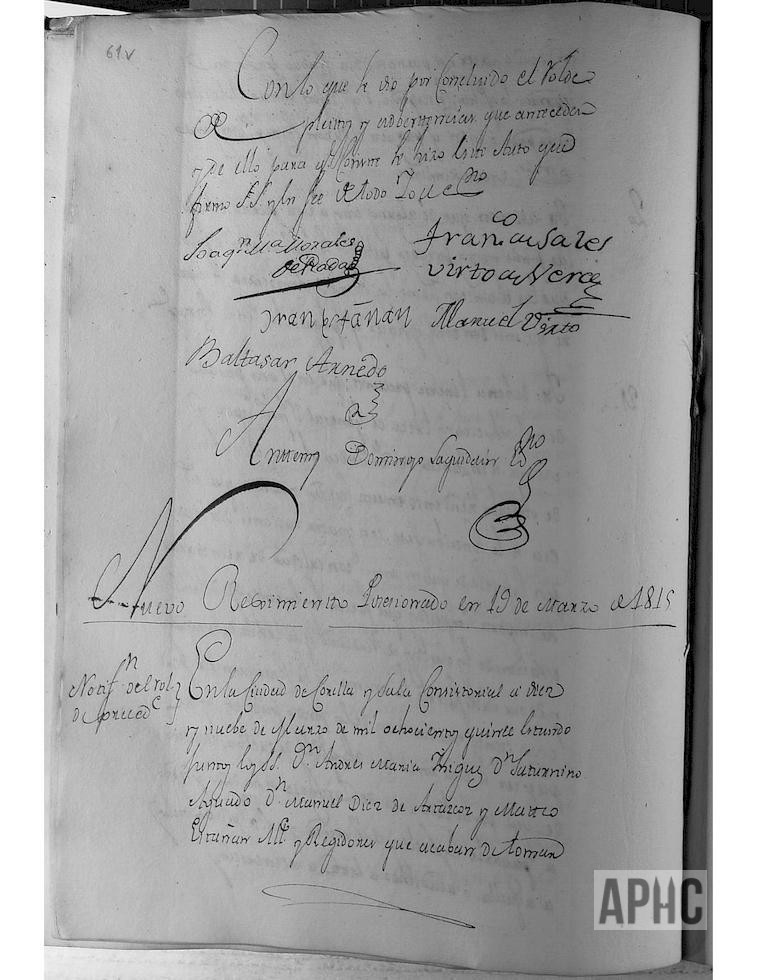 61v
Con lo que se dio por Concluido el Rolde
de pleitos y advertencias que anteceden
y de ello para q.e Conste se hizo este Auto que
firmo S.S. y en fee de todo Yo el es.no
Joaq.n M.a Morales
de Rada
Fran.co de Sales
Virto de Vera
Juan Estañan
Manuel Virto
Baltasar Arnedo
Antemi Domingo Laguidain Es.no
Nuevo Regimiento Posesionado en 19 de Marzo de 1815
Notif.n del rol
de preced.e
En la Ciudad de Corella y Sala Consistorial a diez
y nuebe de Marzo de mil ochocientos quince estando
juntos los SS. D.n Andres Maria Iñiguez D.n Saturnino
Aguado D.n Manuel Diez de Artazcoz y Matteo
Estañan Al.e y Regidores que acaban de tomar
APHC